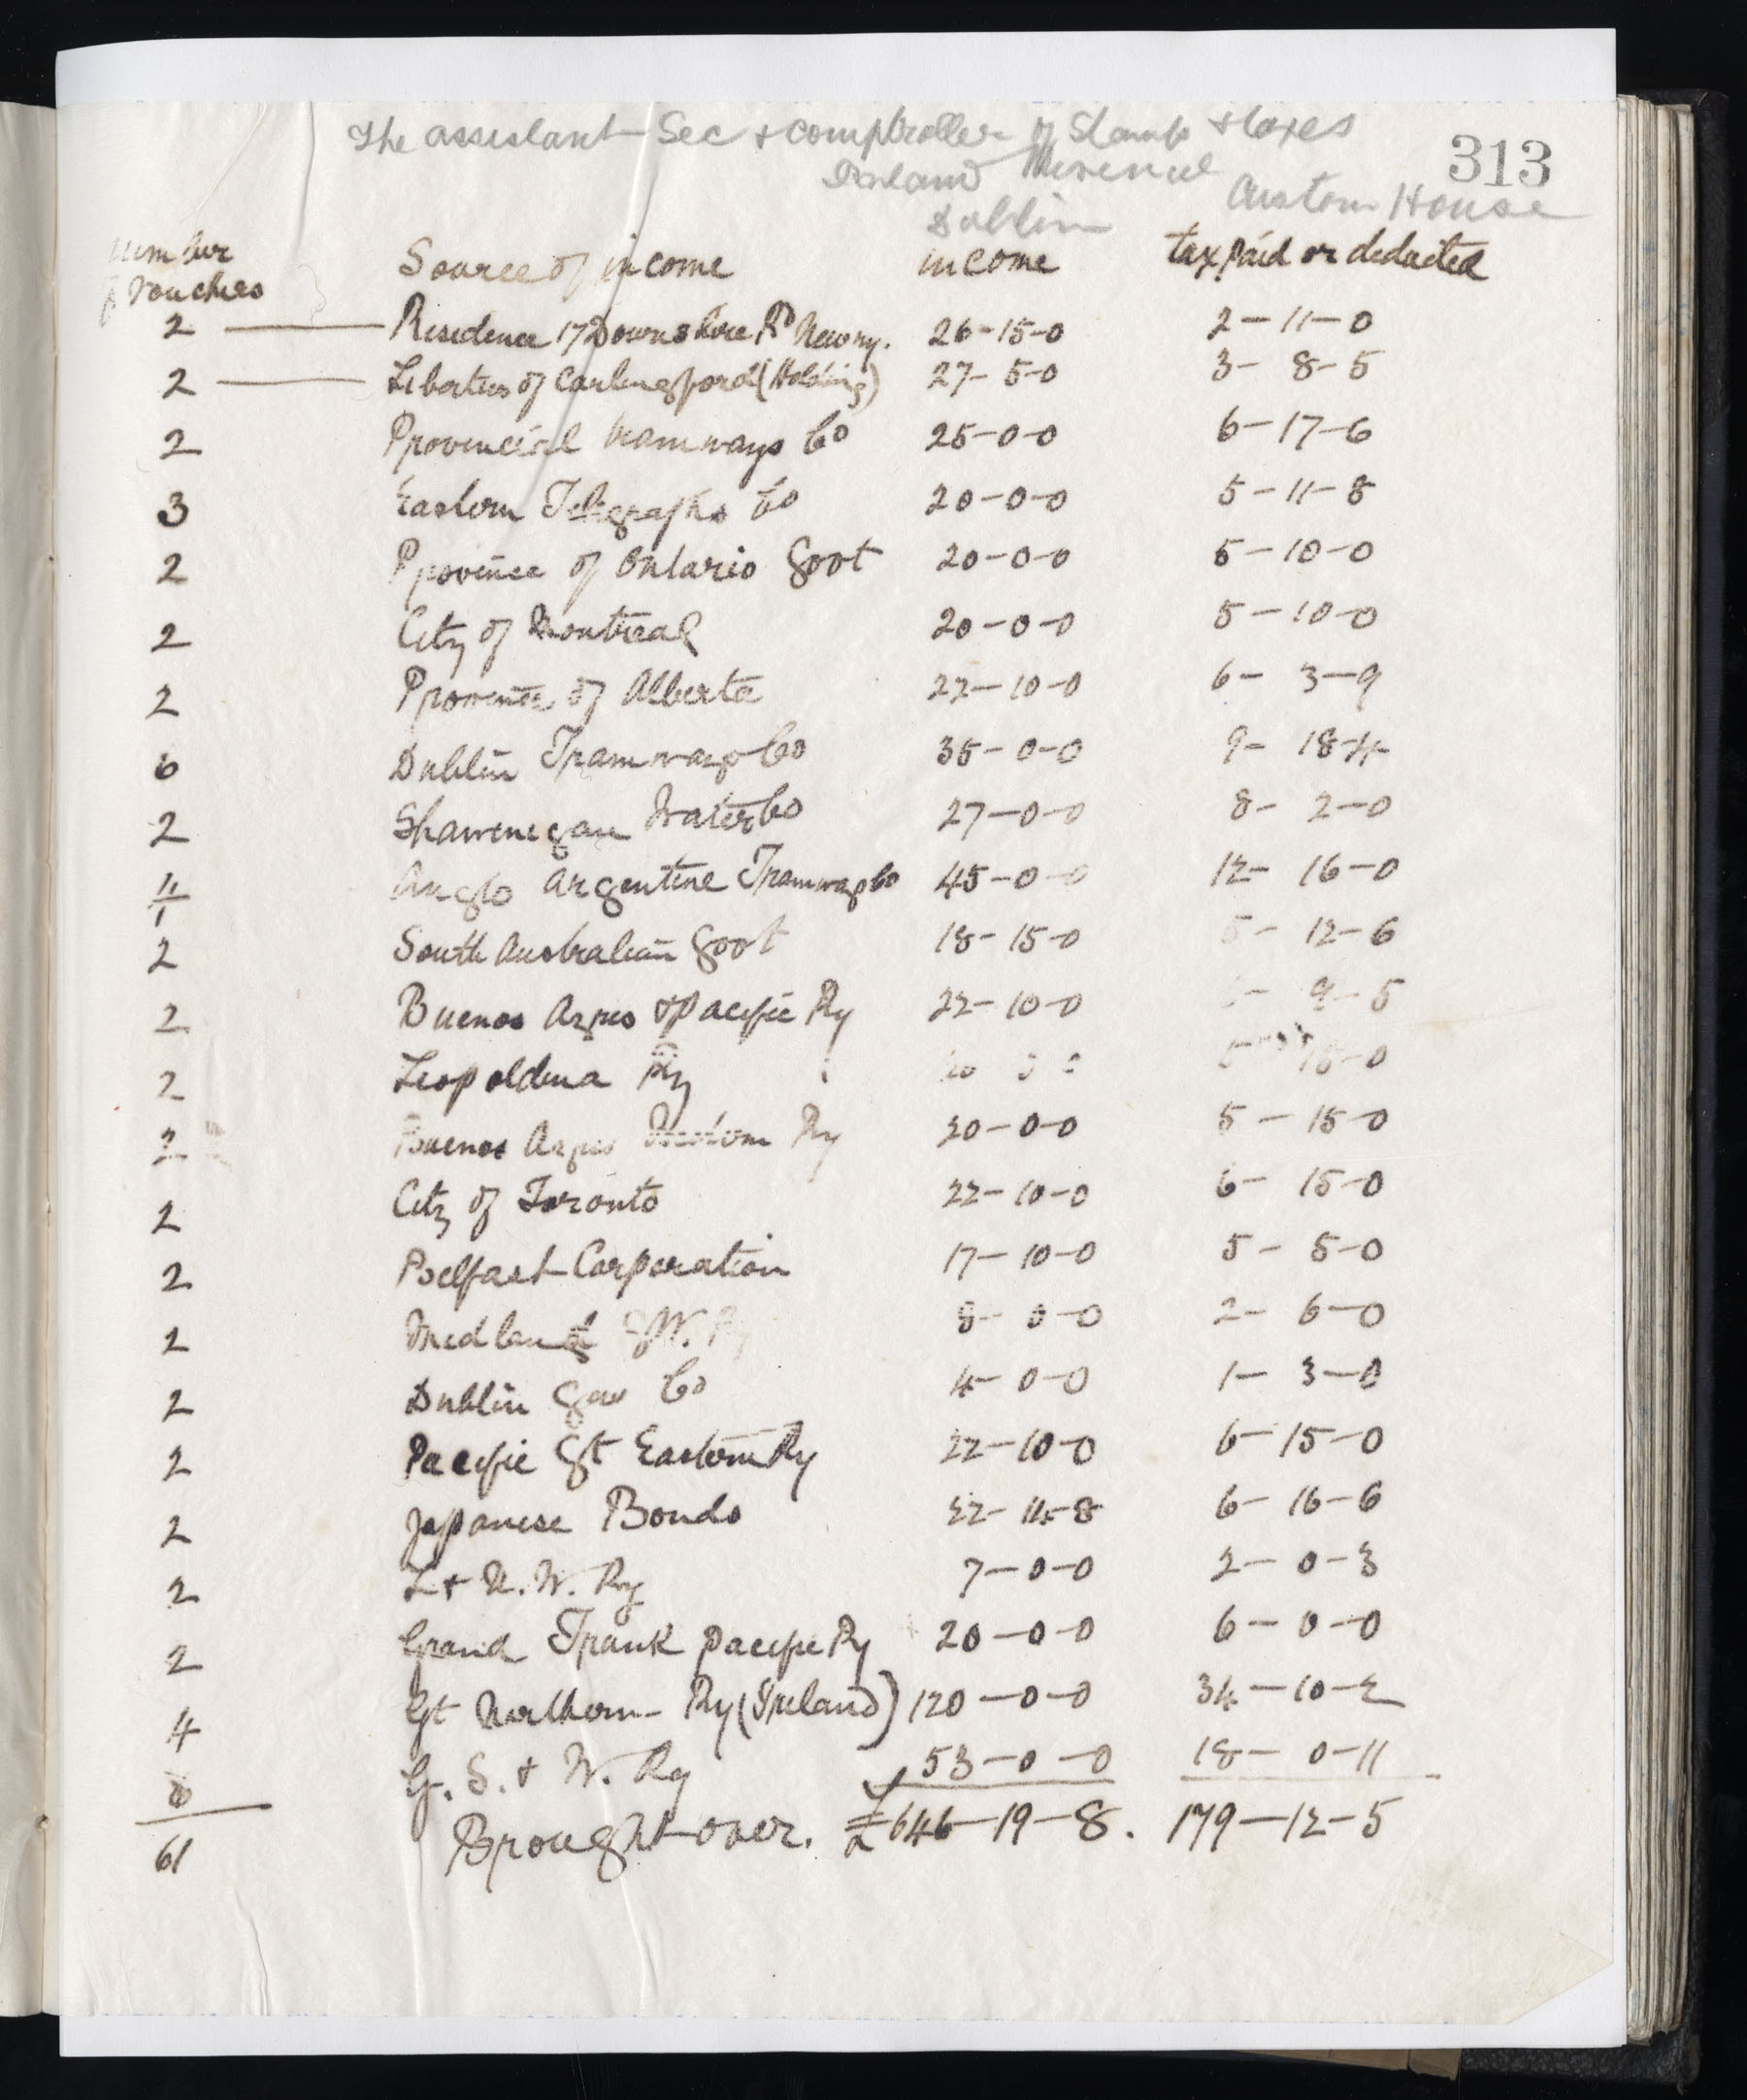 The assistant Sec & comptroller of Stamps & taxes
313
Inland Revenue
Custom House
Dublin
number of vouches Source of income income tax paid or deducted
2 Residence 17 Downshire Rd Newry. 26-15-0 2-11-0
2 Liberties of Carlingford (Holding) 27-5-0 3-8-5
2 Provincial tramways Co 25-0-0 6-17-6
3 Eastern Telegraphs Co 20-0-0 5-11-8
2 Province of Ontario Govt 20-0-0 5-10-0
2 City of Montreal 20-0-0 5-10-0
2 Province of Alberta 22-10-0 6-3-9
6 Dublin Tramways Co 35-0-0 9-18-4
2 Shawenegan Water Co 27-0-0 8-2-0
4 Anglo Argentine Tramways Co 45-0-0 12-16-0
2 South Australian Govt 18-15-0 5-12-6
2 Buenos Ayres & Pacific Ry 22-10-0 9-5
2 Leopoldina Ry 20 5 15-0
2 Buenos Ayres Ry 20-0-0 5-15-0
2 City of Toronto 22-10-0 6-15-0
2 Belfast Corporation 17-10-0 5-5-0
2 Midland G.W. Ry 8-0-0 2-6-0
2 Dublin Gas Co 4-0-0 1-3-0
2 Pacific Gt Eastern Ry 22-10-0 6-15-0
2 Japanese Bonds 22-14-8 6-16-6
2 L & N. W. Ry 7-0-0 2-0-3
2 Grand Trunk Pacific Ry 20-0-0 6-0-0
4 Gt Northern Ry (Ireland) 120-0-0 34-10-2
G. S. & W. Ry 53-0-0 18-0-11
61 Brought over. £646-19-8. 179-12-5